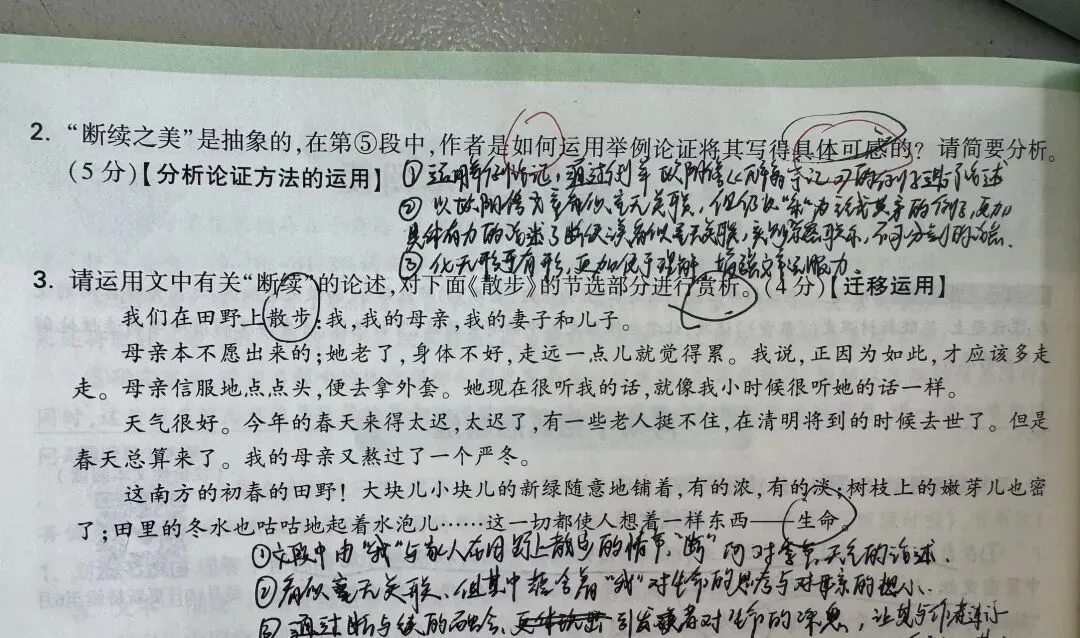 2. “断续之美”是抽象的,在第⑤段中,作者是如何运用举例论证将其写得具体可感的？请简要分析。
(5分)【分析论证方法的运用】 ①运用举例论证,通过列举欧阳修《
② 以欧阳修文章看似毫无关联,但仍以
具体有力的论述了断续 看似毫无关联,实则 联系,不可分割的
③ 化无形于有形,更加便于理解,增强文章说服力
3. 请运用文中有关“断续”的论述,对下面《散步》的节选部分进行赏析。(4分)【迁移运用】
我们在田野上散步:我,我的母亲,我的妻子和儿子。
母亲本不愿出来的;她老了,身体不好,走远一点儿就觉得累。我说,正因为如此,才应该多走
走。母亲信服地点点头,便去拿外套。她现在很听我的话,就像我小时候很听她的话一样。
天气很好。今年的春天来得太迟,太迟了,有一些老人挺不住,在清明将到的时候去世了。但是
春天总算来了。我的母亲又熬过了一个严冬。
这南方的初春的田野！大块儿小块儿的新绿随意地铺着,有的浓,有的淡;树枝上的嫩芽儿也密
了;田里的冬水也咕咕地起着水泡儿……这一切都使人想着一样东西——生命。
①文段中由“我”与家人在田野上散步的情节,“断” 对季节、天气的论述.
②看似毫无关联、但其中蕴含着“我”对生命的思考与对母亲的
③ 通过断与续的融合, 引发读者对生命的深思, 让其与作者进行